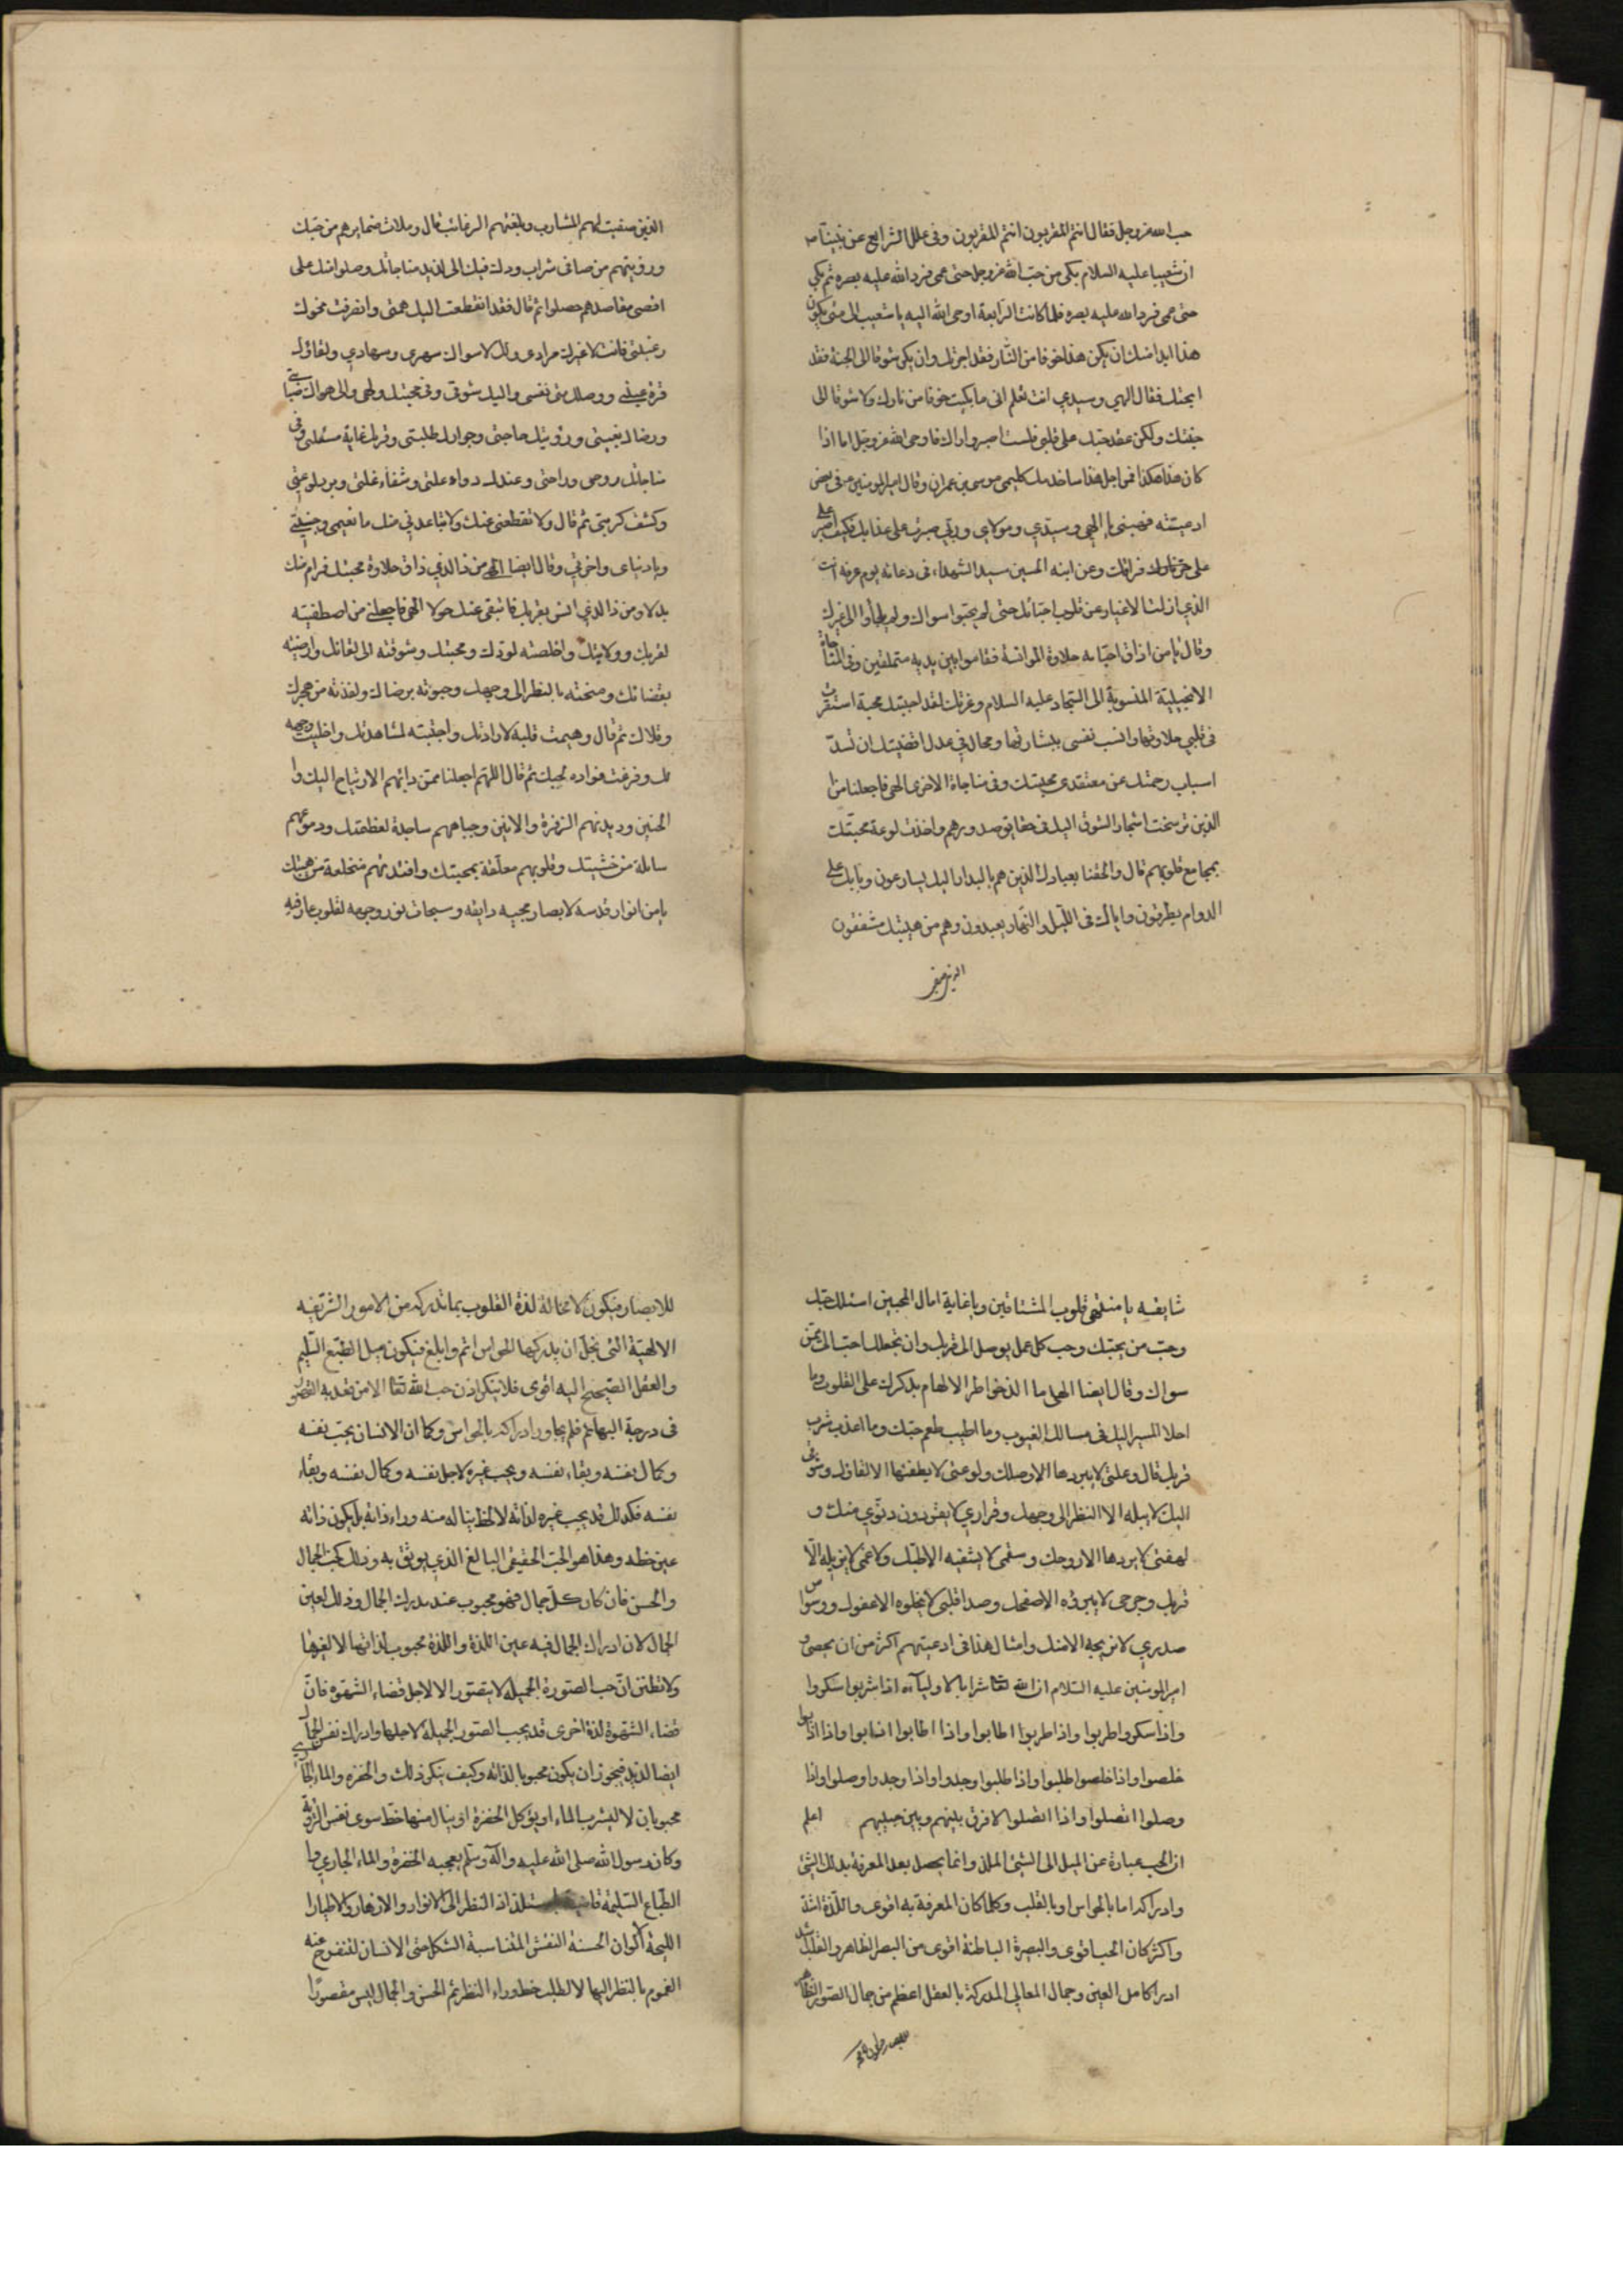 حب الله عز وجل فقال انتم المقربون انتم المقربون وفى علل الشرايع عن نبينا ص
ان شعيبا عليه السلام بكى من حب الله عز وجل حتى عمى فرد الله عليه بصره ثم بكي
حتى عمى فرد الله عليه بصره فلما كانت الرابعة اوحى الله اليه يا شعيب الى متى يكون
هذا ابدا منك ان يكن هذا خوفا من النار فقد اجرتك وان يكن شوقا الى الجنة فقد
ابحتك فقال الهي وسيدي انت تعلم انى ما بكيت خوفا من نارك ولا شوقا الى
جنتك ولكن عقد حبك على قلبى فلست اصبر او اراك فاوحى الله عز وجل اما اذا
كان هذا هكذا فمن اجل هذا ساخدمك كليمى موسى بن عمران وقال امير المؤمنين ع فى بعض
ادعيته فهبنى يا الهي وسيدي ومولاي وربي صبرت على عذابك فكيف اصبر
على فراقك وعن ابنه الحسين سيد الشهداء فى دعائه يوم عرفة انت
الذي ازلت الاغيار عن قلوب احبائك حتى لم يحبوا سواك ولم يلجأوا الى غيرك
وقال يا من اذاق احباءه حلاوة المؤانسة فقاموا بين يديه متملقين وفى المناجاة
الانجيلية المنسوبة الى السجاد عليه السلام وعزتك لقد احببتك محبة استقرت
فى قلبي حلاوتها وانست نفسى ببشارتها ومحال في عدل اقضيتك ان تسد
اسباب رحمتك عن معتقدى محبتك وفى مناجاة الاخرى الهى فاجعلنا من
الذين ترسخت اشجار الشوق اليك فى حدايق صدورهم واخذت لوعة محبتك
بمجامع قلوبهم قال والحقنا بعبادك الذين هم بالبدار اليك يسارعون وبابك على
الدوام يطرقون واياك فى الليل والنهار يعبدون وهم من هيبتك مشفقون
الذين صفيت
الذين صفيت لهم المشارب وبلغتهم الرغائب قال وملات ضمايرهم من حبك
ورويتهم من صافى شراب ودك فبك الى لذيذ مناجاتك وصلوا ومنك على
اقصى مقاصدهم حصلوا ثم قال فقد انقطعت اليك همتى وانصرفت نحوك
رغبتى فانت لا غيرك مرادى ولك لا سواك سهري وسهادي ولقاؤك
قرة عيني ووصلك منى نفسى واليك شوقى وفى محبتك ولهى والى هواك صبابتي
ورضاك بغيتى ورؤيتك حاجتى وجوارك طلبتى وقربك غاية مسئلتى وفى
مناجاتك روحى وراحتى وعندك دواء علتى وشفاء غلتى وبرد لوعتي
وكشف كربتى ثم قال ولا تقطعنى عنك ولا تباعدني منك يا نعيمى وجنتي
ويا دنياى واخرتي وقال ايضا الهى من ذا الذي ذاق حلاوة محبتك فرام منك
بدلا ومن ذا الذي انس بقربك فابتغى عنك حولا الهى فاجعلنى من اصطفيته
لقربك وولايتك واخلصته لودك ومحبتك وشوقته الى لقائك وارضيته
بقضائك ومنحته بالنظر الى وجهك وحبوته برضاك واعذته من هجرك
وقلاك ثم قال وهيمت قلبه لارادتك واجتبيته لمشاهدتك واخليت وجهه
لك وفرغت فواده لحبك ثم قال اللهم اجعلنا ممن دابهم الارتياح اليك وا
الحنين وديدنهم الزفرة والانين وجباههم ساجدة لعظمتك ودموعهم
سائلة من خشيتك وقلوبهم معلقة بمحبتك وافئدتهم منخلعة من هيبتك
يا من انوار قدسه لابصار محبيه رايقه وسبحات نور وجهه لقلوب عارفيه
شايقه يا منتهى قلوب المشتاقين ويا غاية امال المحبين اسئلك حبك
وحب من يحبك وحب كل عمل يوصل الى قربك وان تجعلك احب الى ممن
سواك وقال ايضا الهى ما الذ خواطر الالهام بذكرك على القلوب وما
احلا المسير اليك فى مسالك الغيوب وما اطيب طعم حبك وما اعذب شرب
قربك قال وغلتى لا يبردها الا وصلك ولوعتى لا يطفئها الا لقاؤك وشوقى
اليك لا يبله الا النظر الى وجهك وقراري لا يقر دون دنوي منك و
لهفتى لا يردها الا روحك وسقمى لا يشفيه الا طبك وغمى لا يزيله الا
قربك وجرحى لا يبرئه الا صفحك وصدا قلبى لا يجلوه الا عفوك ووسواس
صدري لا يزيحه الا منك وامثال هذا فى ادعيتهم اكثر من ان يحصى و
امير المؤمنين عليه السلام ان لله تعا شرابا لاوليائه اذا شربوا سكروا
واذا سكروا طربوا واذا طربوا طابوا واذا طابوا ذابوا واذا ذابوا
خلصوا واذا خلصوا طلبوا واذا طلبوا وجدوا واذا وجدوا وصلوا واذا
وصلوا اتصلوا واذا اتصلوا لا فرق بينهم وبين حبيبهم اعلم
ان الحب عبارة عن الميل الى الشئ الملذ وانما يحصل بعد المعرفة بذلك الشئ
وادراكه اما بالحواس او بالقلب وكلما كان المعرفة به اقوى واللذة اشد
واكثر كان الحب اقوى والبصيرة الباطنة اقوى من البصر الظاهر والقلب اشد
ادراكا من العين وجمال المعانى المدركة بالعقل اعظم من جمال الصور الظاهرة
للابصار فيكون لا محالة لذة القلوب بما تدركه من الامور الشريفه
الالهية التى تجل ان يدركها الحواس اتم وابلغ فيكون ميل الطبع السليم
والعقل الصحيح اليه اقوى فلا ينكر اذن حب الله تعا الا من قعد به القصور
فى درجة البهائم فلم يجاوز ادراكه بالحواس وكما ان الانسان يحب نفسه
وكمال نفسه وبقاء نفسه ويحب غيره لاجل نفسه وكمال نفسه وبقاء
نفسه فكذلك قد يحب غيره لذاته لا لحظ يناله منه وراء ذاته بل يكون ذاته
عين حظه وهذا هو الحب الحقيقى البالغ الذي يوثق به وذلك كحب الجمال
والحسن فان كان كل جمال فهو محبوب عند مدرك الجمال وذلك لعين
الجمال لان ادراك الجمال فيه عين اللذة واللذة محبوب لذاتها لا لغيرها
ولا تظنن ان حب الصورة الجميلة لا يتصور الا لاجل قضاء الشهوة فان
قضاء الشهوة لذة اخرى قد يحب الصور الجميلة لاجلها وادراك نفس الجمال
ايضا لذيذ فيجوز ان يكون محبوبا لذاته وكيف ينكر ذلك والخضرة والماء الجاري
محبوبان لا ليشرب الماء او يؤكل الخضرة او ينال منها حظ سوى نفس الرؤية
وكان رسول الله صلى الله عليه وآله وسلم يعجبه الخضرة والماء الجاري وا
الطباع السليمة قاضية باستلذاذ النظر الى الانوار والازهار والاطيار
المليحة الالوان الحسنة النقش المتناسبة الشكل حتى الانسان لتنفرج عنه
الغموم بالنظر اليها لا لطلب حظ وراء النظر ثم الحسن والجمال ليس مقصورا